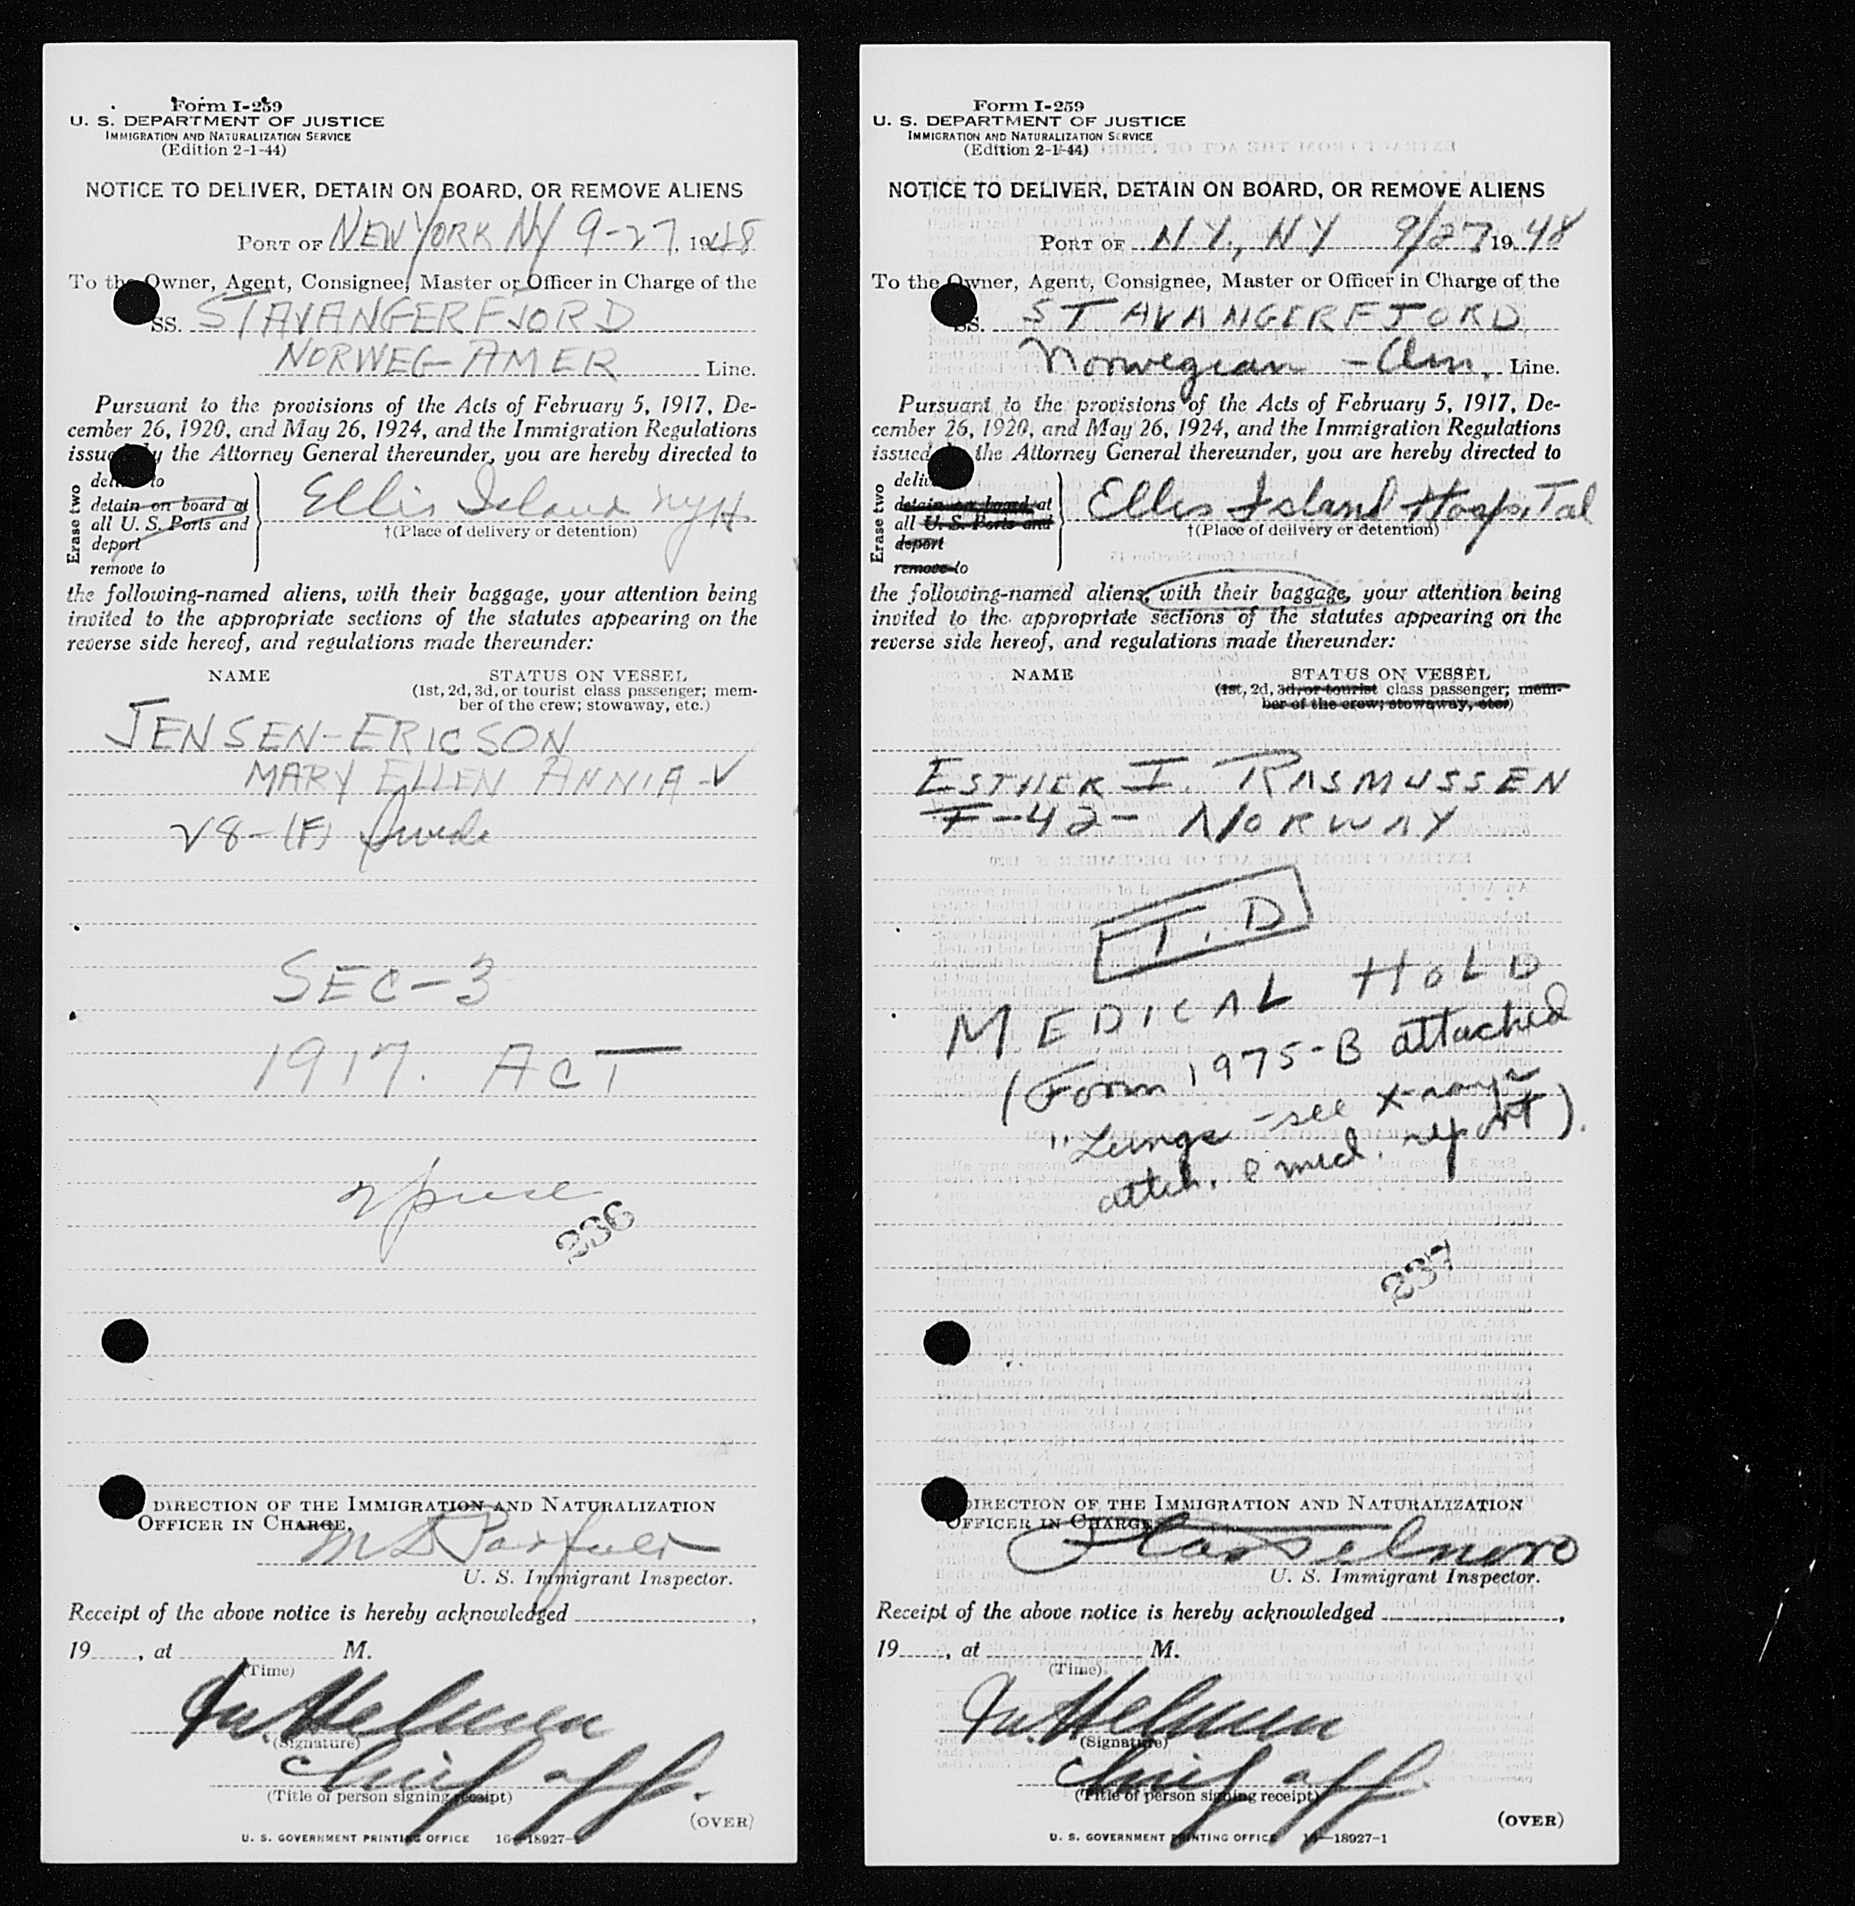 Form I-259
U. S. DEPARTMENT OF JUSTICE
IMMIGRATION AND NATURALIZATION SERVICE
(Edition 2-1-44)
NOTICE TO DELIVER, DETAIN ON BOARD, OR REMOVE ALIENS
PORT OF NEW YORK NY 9-27, 1948
To the Owner, Agent, Consignee, Master or Officer in Charge of the
SS. STAVANGERFJORD
NORWEG-AMER Line.
Pursuant to the provisions of the Acts of February 5, 1917, De-
cember 26, 1920, and May 26, 1924, and the Immigration Regulations
issued by the Attorney General thereunder, you are hereby directed to
Erase two
deliver to
detain on board at
all U. S. Ports and
deport
remove to
Ellis Island NYH
†(Place of delivery or detention)
the following-named aliens, with their baggage, your attention being
invited to the appropriate sections of the statutes appearing on the
reverse side hereof, and regulations made thereunder:
NAME STATUS ON VESSEL
(1st, 2d, 3d, or tourist class passenger; mem-
ber of the crew; stowaway, etc.)
JENSEN-ERICSON
MARY ELLEN ANNIA-V
28-(F) Swede
SEC-3
1917. ACT
236
DIRECTION OF THE IMMIGRATION AND NATURALIZATION
OFFICER IN CHARGE.
U. S. Immigrant Inspector.
Receipt of the above notice is hereby acknowledged ,
19 , at M.
(Time)
(Signature)
Chief off.
(Title of person signing receipt)
(OVER)
U. S. GOVERNMENT PRINTING OFFICE 16—18927-1
Form I-259
U. S. DEPARTMENT OF JUSTICE
IMMIGRATION AND NATURALIZATION SERVICE
(Edition 2-1-44)
NOTICE TO DELIVER, DETAIN ON BOARD, OR REMOVE ALIENS
PORT OF N.Y., NY 9/27 1948
To the Owner, Agent, Consignee, Master or Officer in Charge of the
SS. STAVANGERFJORD
Norwegian - Am. Line.
Pursuant to the provisions of the Acts of February 5, 1917, De-
cember 26, 1920, and May 26, 1924, and the Immigration Regulations
issued by the Attorney General thereunder, you are hereby directed to
Erase two
deliver to
detain on board at
all U. S. Ports and
deport
remove to
Ellis Island Hospital
†(Place of delivery or detention)
the following-named aliens, with their baggage, your attention being
invited to the appropriate sections of the statutes appearing on the
reverse side hereof, and regulations made thereunder:
NAME STATUS ON VESSEL
(1st, 2d, 3d, or tourist class passenger; mem-
ber of the crew; stowaway, etc.)
ESTHER I. RASMUSSEN
F-42- NORWAY
T.D
MEDICAL HOLD
(Form 1975-B attached
"Lungs - see X-rays
attch. c med. report).
237
DIRECTION OF THE IMMIGRATION AND NATURALIZATION
OFFICER IN CHARGE.
U. S. Immigrant Inspector.
Receipt of the above notice is hereby acknowledged ,
19 , at M.
(Time)
(Signature)
Chief off.
(Title of person signing receipt)
(OVER)
U. S. GOVERNMENT PRINTING OFFICE 16—18927-1